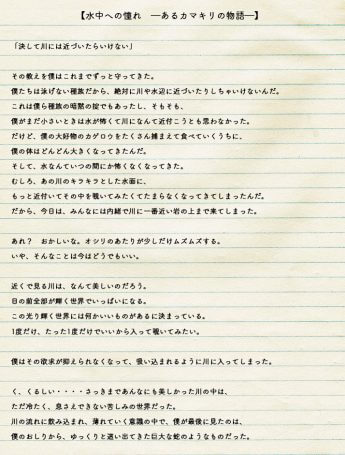 【水中への憧れ ―あるカマキリの物語―】
「決して川には近づいたらいけない」
その教えを僕はこれまでずっと守ってきた。
僕たちは泳げない種族だから、絶対に川や水辺に近づいたりしちゃいけないんだ。
これは僕ら種族の暗黙の掟でもあったし、そもそも、
僕がまだ小さいときは水が怖くて川になんて近付こうとも思わなかった。
だけど、僕の大好物のカゲロウをたくさん捕まえて食べていくうちに、
僕の体はどんどん大きくなってきたんだ。
そして、水なんていつの間にか怖くなくなってきた。
むしろ、あの川のキラキラとした水面に、
もっと近付いてその中を覗いてみたくてたまらなくなってきてしまったんだ。
だから、今日は、みんなには内緒で川に一番近い岩の上まで来てしまった。
あれ？ おかしいな。オシリのあたりが少しだけムズムズする。
いや、そんなことは今はどうでもいい。
近くで見る川は、なんて美しいのだろう。
目の前全部が輝く世界でいっぱいになる。
この光り輝く世界には何かいいものがあるに決まっている。
1度だけ、たった1度だけでいいから入って覗いてみたい。
僕はその欲求が抑えられなくなって、吸い込まれるように川に入ってしまった。
く、くるしい・・・・さっきまであんなにも美しかった川の中は、
ただ冷たく、息さえできない苦しみの世界だった。
川の流れに飲み込まれ、薄れていく意識の中で、僕が最後に見たのは、
僕のおしりから、ゆっくりと這い出てきた巨大な蛇のようなものだった。